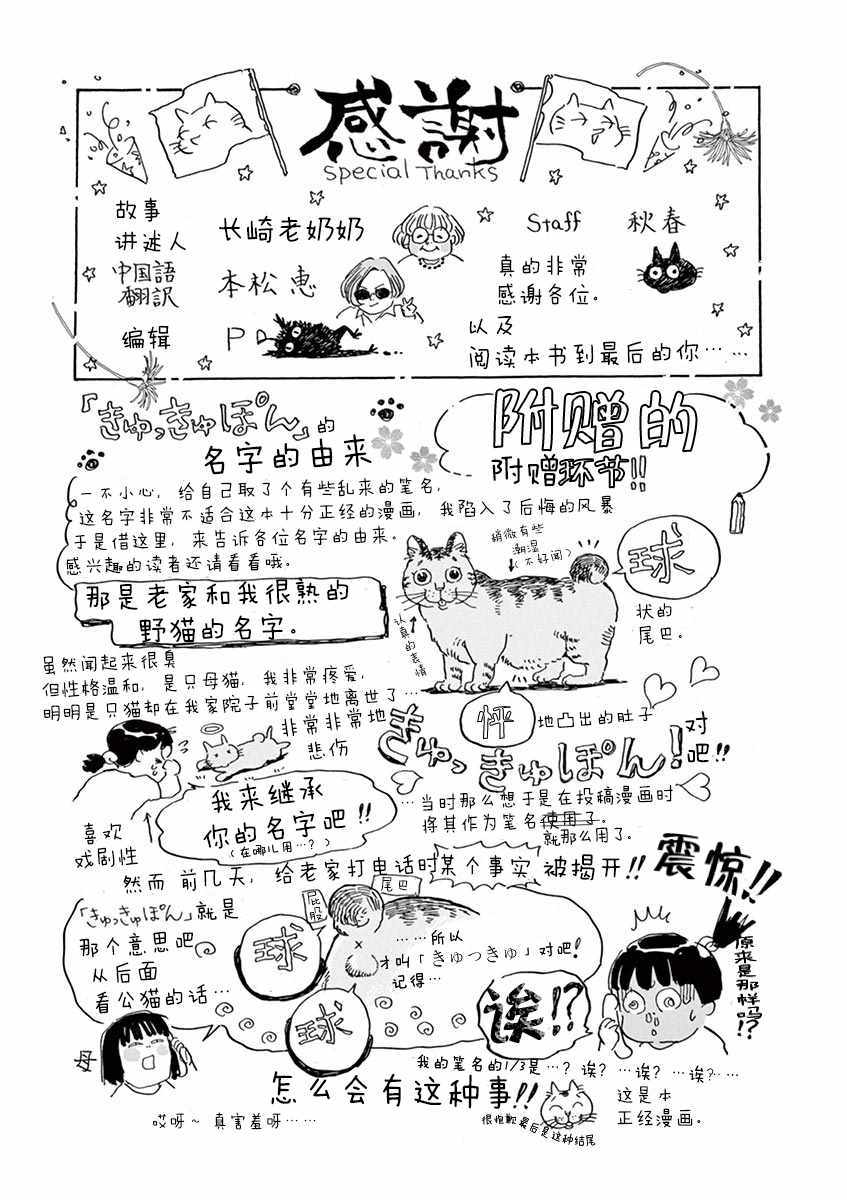 感謝
Special Thanks
故事
讲述人
长崎老奶奶
中国語
翻訳
本松惠
编辑
P
Staff
秋春
真的非常
感谢各位。
以及
阅读本书到最后的你……
「きゅっきゅぽん」的
名字的由来
附赠的
附赠环节!!
一不小心，给自己取了个有些乱来的笔名，
这名字非常不适合这本十分正经的漫画，我陷入了后悔的风暴
于是借这里，来告诉各位名字的由来。
感兴趣的读者还请看看哦。
那是老家和我很熟的
野猫的名字。
稍微有些
潮湿
（不好闻）
球
状的
尾巴。
认真的表情
虽然闻起来很臭
但性格温和，是只母猫，我非常疼爱，
明明是只猫却在我家院子前堂堂地离世了…
非常非常地
悲伤
怦
地凸出的肚子
きゅっきゅぽん!
对
吧!!
我来继承
你的名字吧!!
（在哪儿用…？）
喜欢
戏剧性
…当时那么想于是在投稿漫画时
将其作为笔名使用了。
就那么用了。
然而 前几天，给老家打电话时某个事实 被揭开!!
震惊!!
「きゅっきゅぽん」就是
那个意思吧
从后面
看公猫的话…
屁股
尾巴
球
球
……所以
才叫「きゅっきゅ」对吧!
记得…
诶!?
原来是那样吗!?
母
我的笔名的1/3是…？诶？…诶？…诶？…
怎么会有这种事!!
这是本
正经漫画。
哎呀～ 真害羞呀……
很抱歉最后是这种结尾